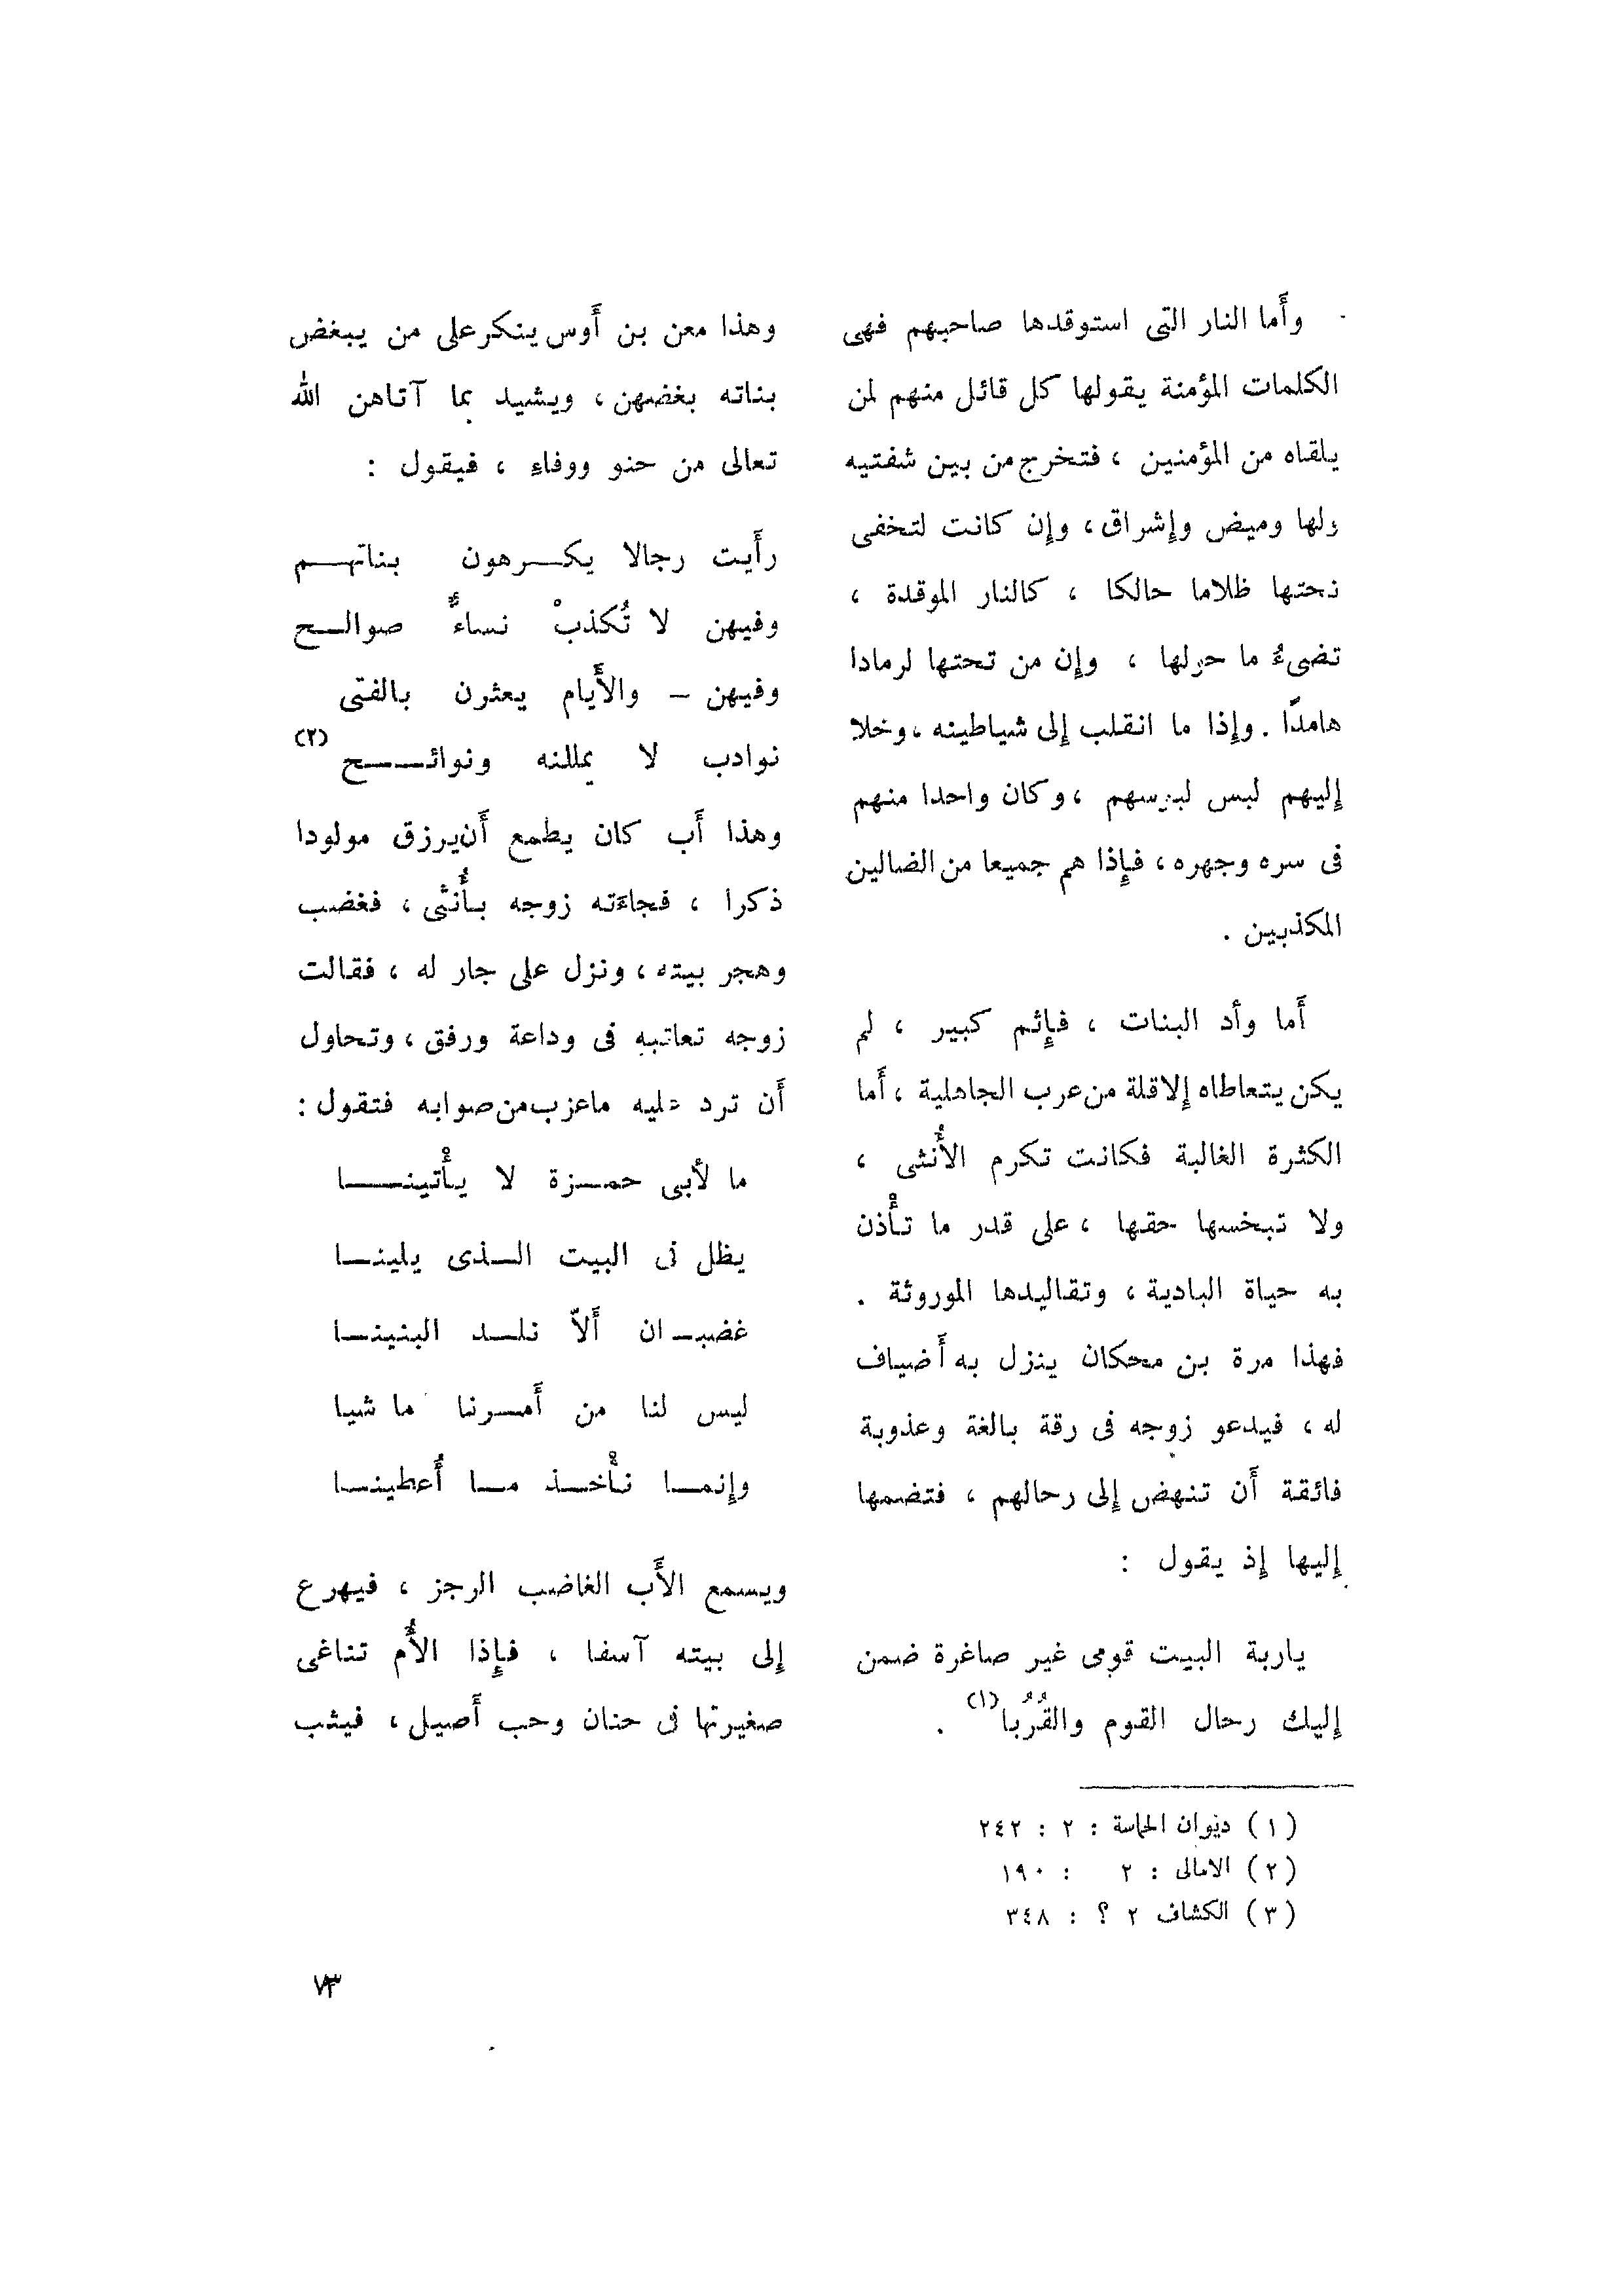 وأَما النار التى استوقدها صاحبهم فهى
الكلمات المؤمنة يقولها كل قائل منهم لمن
يلقاه من المؤمنين ، فتخرج من بين شفتيه
ولها وميض وإشراق، وإن كانت لتخفى
تحتها ظلاما حالكا ، كالنار الموقدة ،
تضىءُ ما حولها ، وإن من تحتها لرمادا
هامدًا . وإذا ما انقلب إلى شياطينه ، وخلا
إليهم لبس لبوسهم ، وكان واحدا منهم
فى سره وجهره ، فإذا هم جميعا من الضالين
المكذبين .
أَما وأد البنات ، فإثم كبير ، لم
يكن يتعاطاه إلا قلة من عرب الجاهلية ، أَما
الكثرة الغالبة فكانت تكرم الأُنثى ،
ولا تبخسها حقها ، على قدر ما تأْذن
به حياة البادية ، وتقاليدها الموروثة .
فهذا مرة بن محكان ينزل به أَضياف
له ، فيدعو زوجه فى رقة بالغة وعذوبة
فائقة أَن تنهض إلى رحالهم ، فتضمها
إليها إذ يقول :
ياربة البيت قومى غير صاغرة ضمن
إليك رحال القوم والقُرُبا (١) .
وهذا معن بن أَوس ينكر على من يبغض
بناته بغضهن ، ويشيد بما آتاهن الله
تعالى من حنو ووفاءِ ، فيقول :
رأَيت رجالا يكــرهون بناتهــم
وفيهن لا تُكذبْ نساءٌ صوالــح
وفيهن – والأَيام يعثرن بالفتى
نوادب لا يمللنه ونوائــح (٢)
وهذا أَب كان يطمع أَن يرزق مولودا
ذكرا ، فجاءَته زوجه بأُنثى ، فغضب
وهجر بيته ، ونزل على جار له ، فقالت
زوجه تعاتبه فى وداعة ورفق ، وتحاول
أَن ترد عليه ماعزب من صوابه فتقول :
ما لأبى حمــزة لا يأْتينــا
يظل فى البيت الــذى يلينــا
غضبــان أَلاّ نلــد البنينــا
ليس لنا من أَمــرنا ما شيا
وإنمــا نأْخــذ مــا أُعطينــا
ويسمع الأَب الغاضب الرجز ، فيهرع
إلى بيته آسفا ، فإذا الأُم تناغى
صغيرتها فى حنان وحب أَصيل ، فيثب
(١) ديوان الحماسة : ٢ : ٢٤٢
(٢) الامالى : ٢ : ١٩٠
(٣) الكشاف ٢ ؟ : ٣٤٨
٧٣